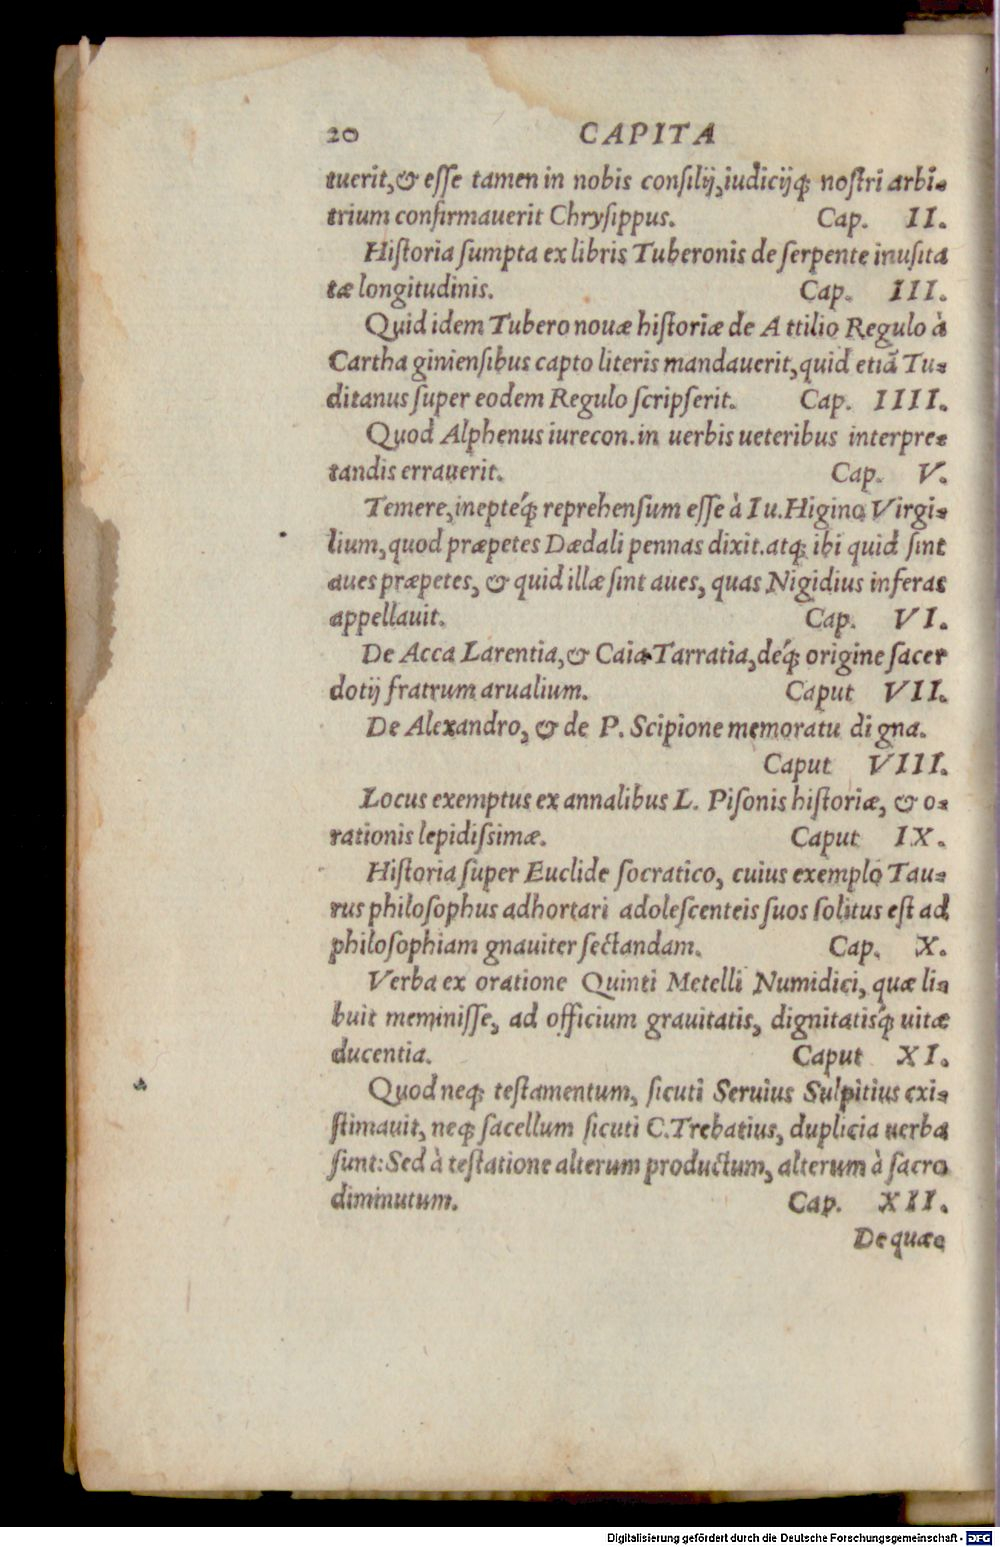 20 CAPITA
tuerit, & esse tamen in nobis consilij, iudicijq; nostri arbi-
trium confirmauerit Chrysippus. Cap. II.
Historia sumpta ex libris Tuberonis de serpente inusita
tæ longitudinis. Cap. III.
Quid idem Tubero nouæ historiæ de Attilio Regulo à
Carthaginiensibus capto literis mandauerit, quid etiã Tu-
ditanus super eodem Regulo scripserit. Cap. IIII.
Quod Alphenus iurecon. in uerbis ueteribus interpre-
tandis errauerit. Cap. V.
Temere, ineptéq; reprehensum esse à Iu. Higino Virgi-
lium, quod præpetes Dædali pennas dixit. atq; ibi quid sint
aues præpetes, & quid illæ sint aues, quas Nigidius inferas
appellauit. Cap. VI.
De Acca Larentia, & Caia Tarratia, déq; origine sacer
dotij fratrum arualium. Caput VII.
De Alexandro, & de P. Scipione memoratu digna.
Caput VIII.
Locus exemptus ex annalibus L. Pisonis historiæ, & o-
rationis lepidissimæ. Caput IX.
Historia super Euclide socratico, cuius exemplo Tau-
rus philosophus adhortari adolescenteis suos solitus est ad
philosophiam gnauiter sectandam. Cap. X.
Verba ex oratione Quinti Metelli Numidici, quæ li-
buit meminisse, ad officium grauitatis, dignitatisq́; uitæ
ducentia. Caput XI.
Quod neq; testamentum, sicuti Seruius Sulpitius exi-
stimauit, neq; sacellum sicuti C. Trebatius, duplicia uerba
sunt: Sed à testatione alterum productum, alterum à sacro
diminutum. Cap. XII.
De quæ-
Digitalisierung gefördert durch die Deutsche Forschungsgemeinschaft - DFG